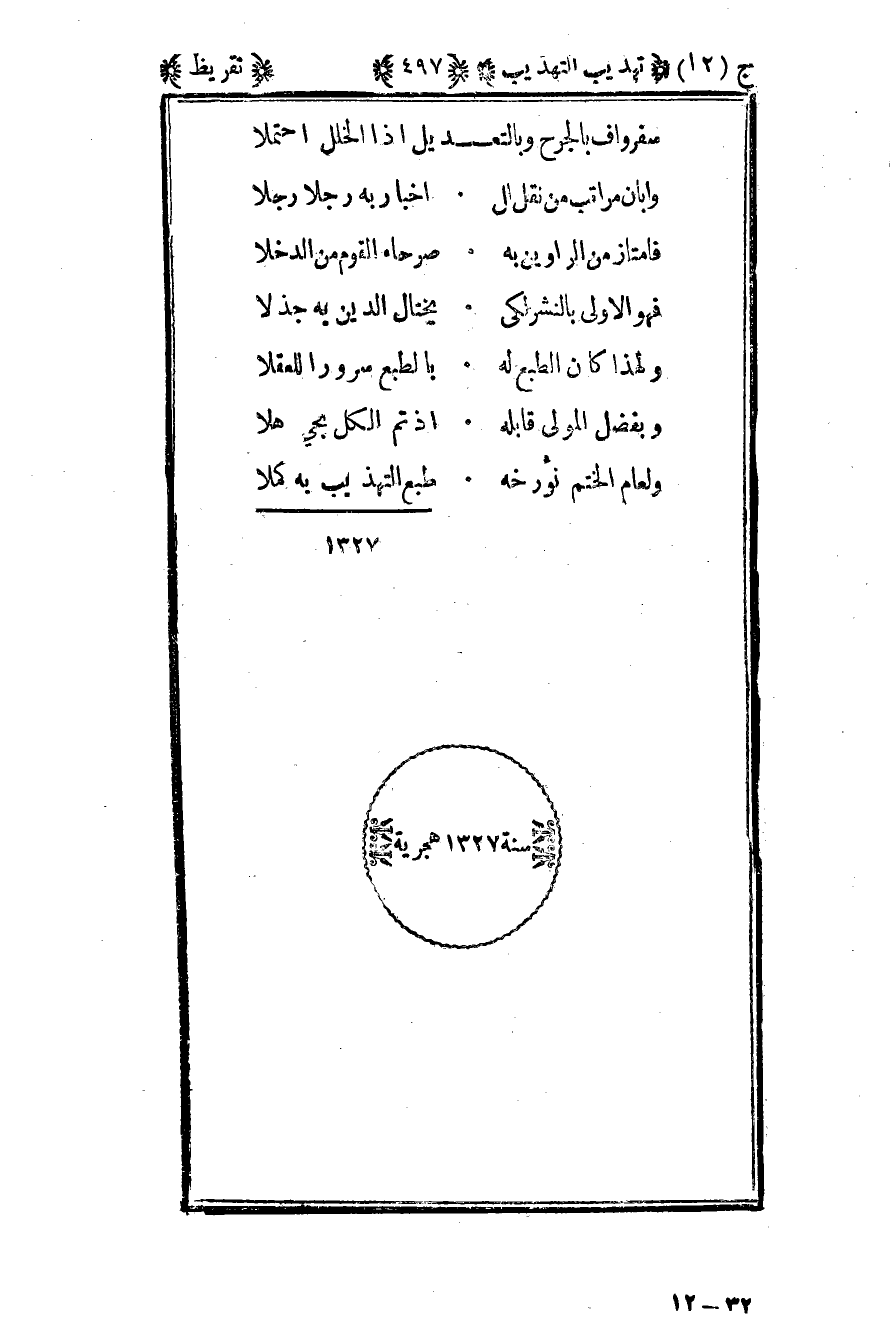 ج (١٢) تهذيب التهذيب ٤٩٧ تقريظ
سفرواف بالجرح وبالتعـــديل اذا الخلل احتملا
وابان مراتب من نقل ال ٠ اخبار به رجلا رجلا
فامتاز من الراوين به ٠ صرحاه القوم من الدخلا
فهو الاولى بالنشر لكى ٠ يختال الدين به جذلا
ولهذا كان الطبع له ٠ بالطبع سرورا للعقلا
وبفضل المولى قابله ٠ اذ تم الكل بجي هلا
ولعام الختم نؤرخه ٠ طبع التهذيب به كملا
١٣٢٧
سنة ١٣٢٧ هجرية
١٢ — ٣٢